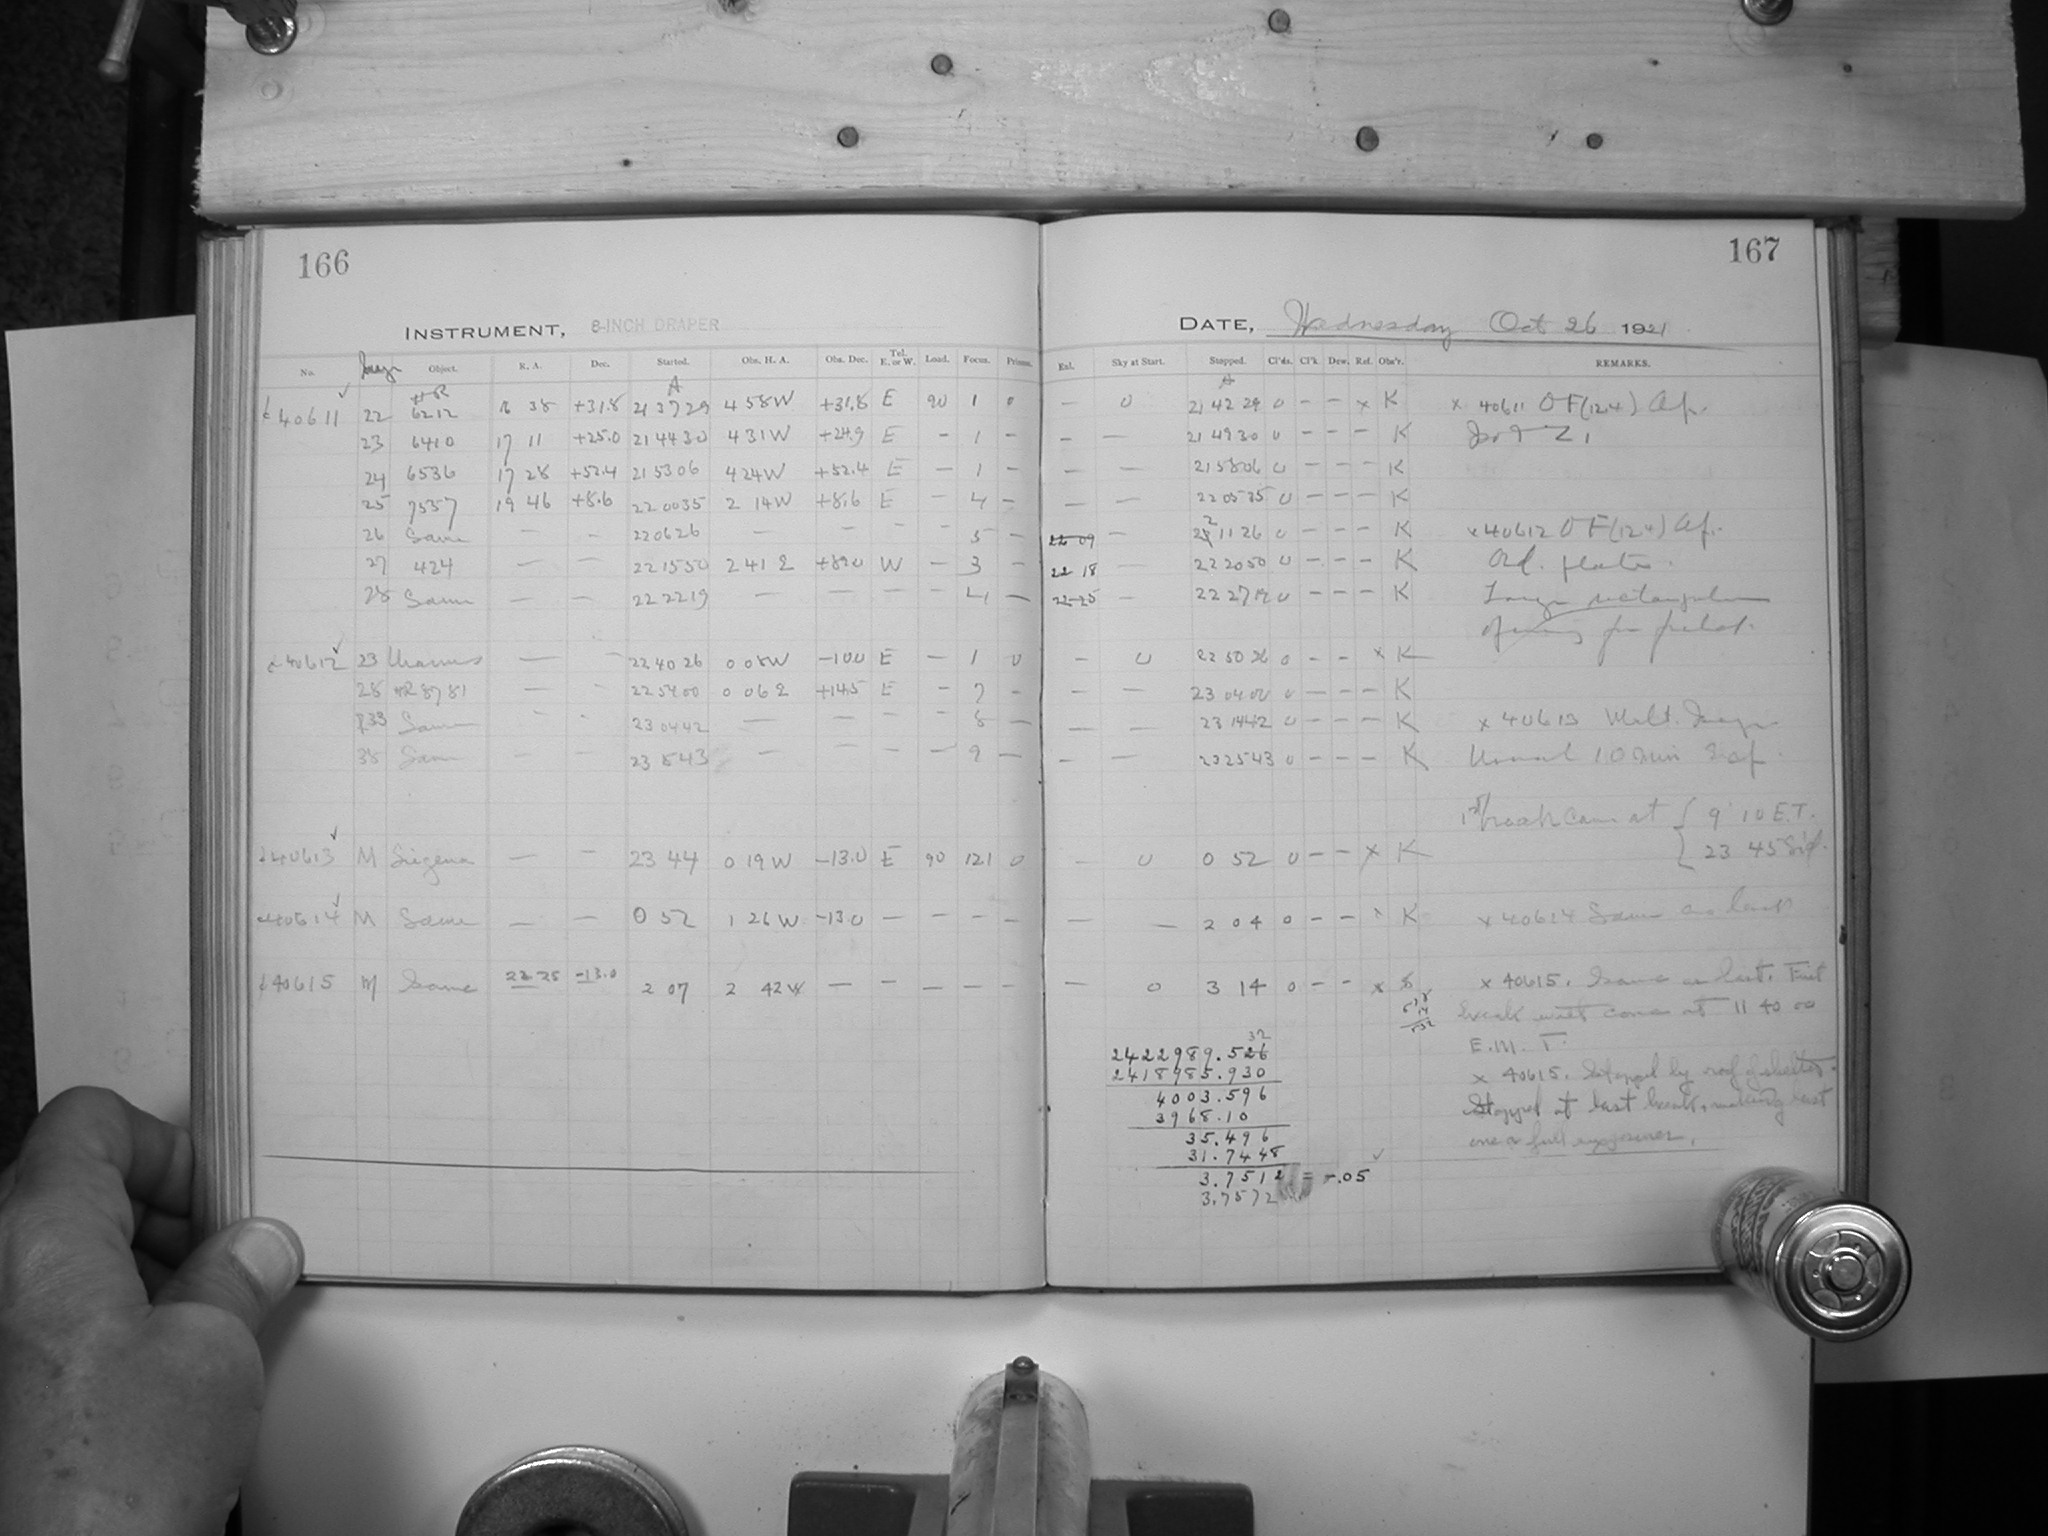 166
167
INSTRUMENT, 8-INCH DRAPER
DATE, Wednesday Oct 26 1921
No. Image Object. R. A. Dec. Started. Obs. H. A. Obs. Dec. Tel. E. or W. Load. Focus. Prisms.
Eal. Sky at Start. Stopped. Cl'ds. Cl'k Dew. Ref. Obs'r. REMARKS.
A
40611 22 HR 6212 16 38 +31.8 21 37 29 4 58 W +31.8 E 90 1 0 — 0 21 42 29 0 — — x K x 40611 OF (12.4) Ap.
23 6410 17 11 +25.0 21 44 30 4 31 W +24.9 E — 1 — — — 21 49 30 0 — — — K
24 6536 17 28 +52.4 21 53 06 4 24 W +52.4 E — 1 — — — 21 58 06 0 — — — K
25 7557 19 46 +8.6 22 00 35 2 14 W +8.6 E — 4 — — — 22 05 35 0 — — — K
26 Same — — 22 06 26 — — — — 5 — 22 09 — 22 11 26 0 — — — K x 40612 OF (12.4) Ap.
27 424 — — 22 15 50 2 41 E +89.0 W — 3 — 22 18 — 22 20 50 0 — — — K Ord. plate.
28 Same — — 22 22 19 — — — — 4 — 22 25 — 22 27 19 0 — — — K Large rectangular
opening for
40612 23 Uranus — — 22 40 26 0 08 W -10.0 E — 1 0 — 0 22 50 26 0 — — x K
28 HR 8781 — — 22 54 00 0 06 E +14.5 E — 7 — — — 23 04 00 0 — — — K
33 Same — — 23 04 42 — — — — 8 — — — 23 14 42 0 — — — K x 40613 Mult. Image
38 Same — — 23 15 43 — — — — 9 — — — 23 25 43 0 — — — K Usual 10 min Exp.
1st break came at { 9 10 E.T.
{ 23 45 Sid.
40613 M Siegena — — 23 44 0 19 W -13.0 E 90 121 0 — 0 0 52 0 — — x K
40614 M Same — — 0 52 1 26 W -13.0 — — — — — — 2 04 0 — — x K x 40614 Same as last
40615 M Same 22 25 -13.0 2 07 2 42 W — — — — — — 0 3 14 0 — — x x 40615. Same as last. First
break will come at 11 40 00
E.M.T.
32
2422989.526
2418985.930
4003.596
3968.10
35.496
31.7448
3.7512 = -.05
3.7572
x 40615. Stopped by roof of shelter.
Stopped at last break, making last
one a full exposure.